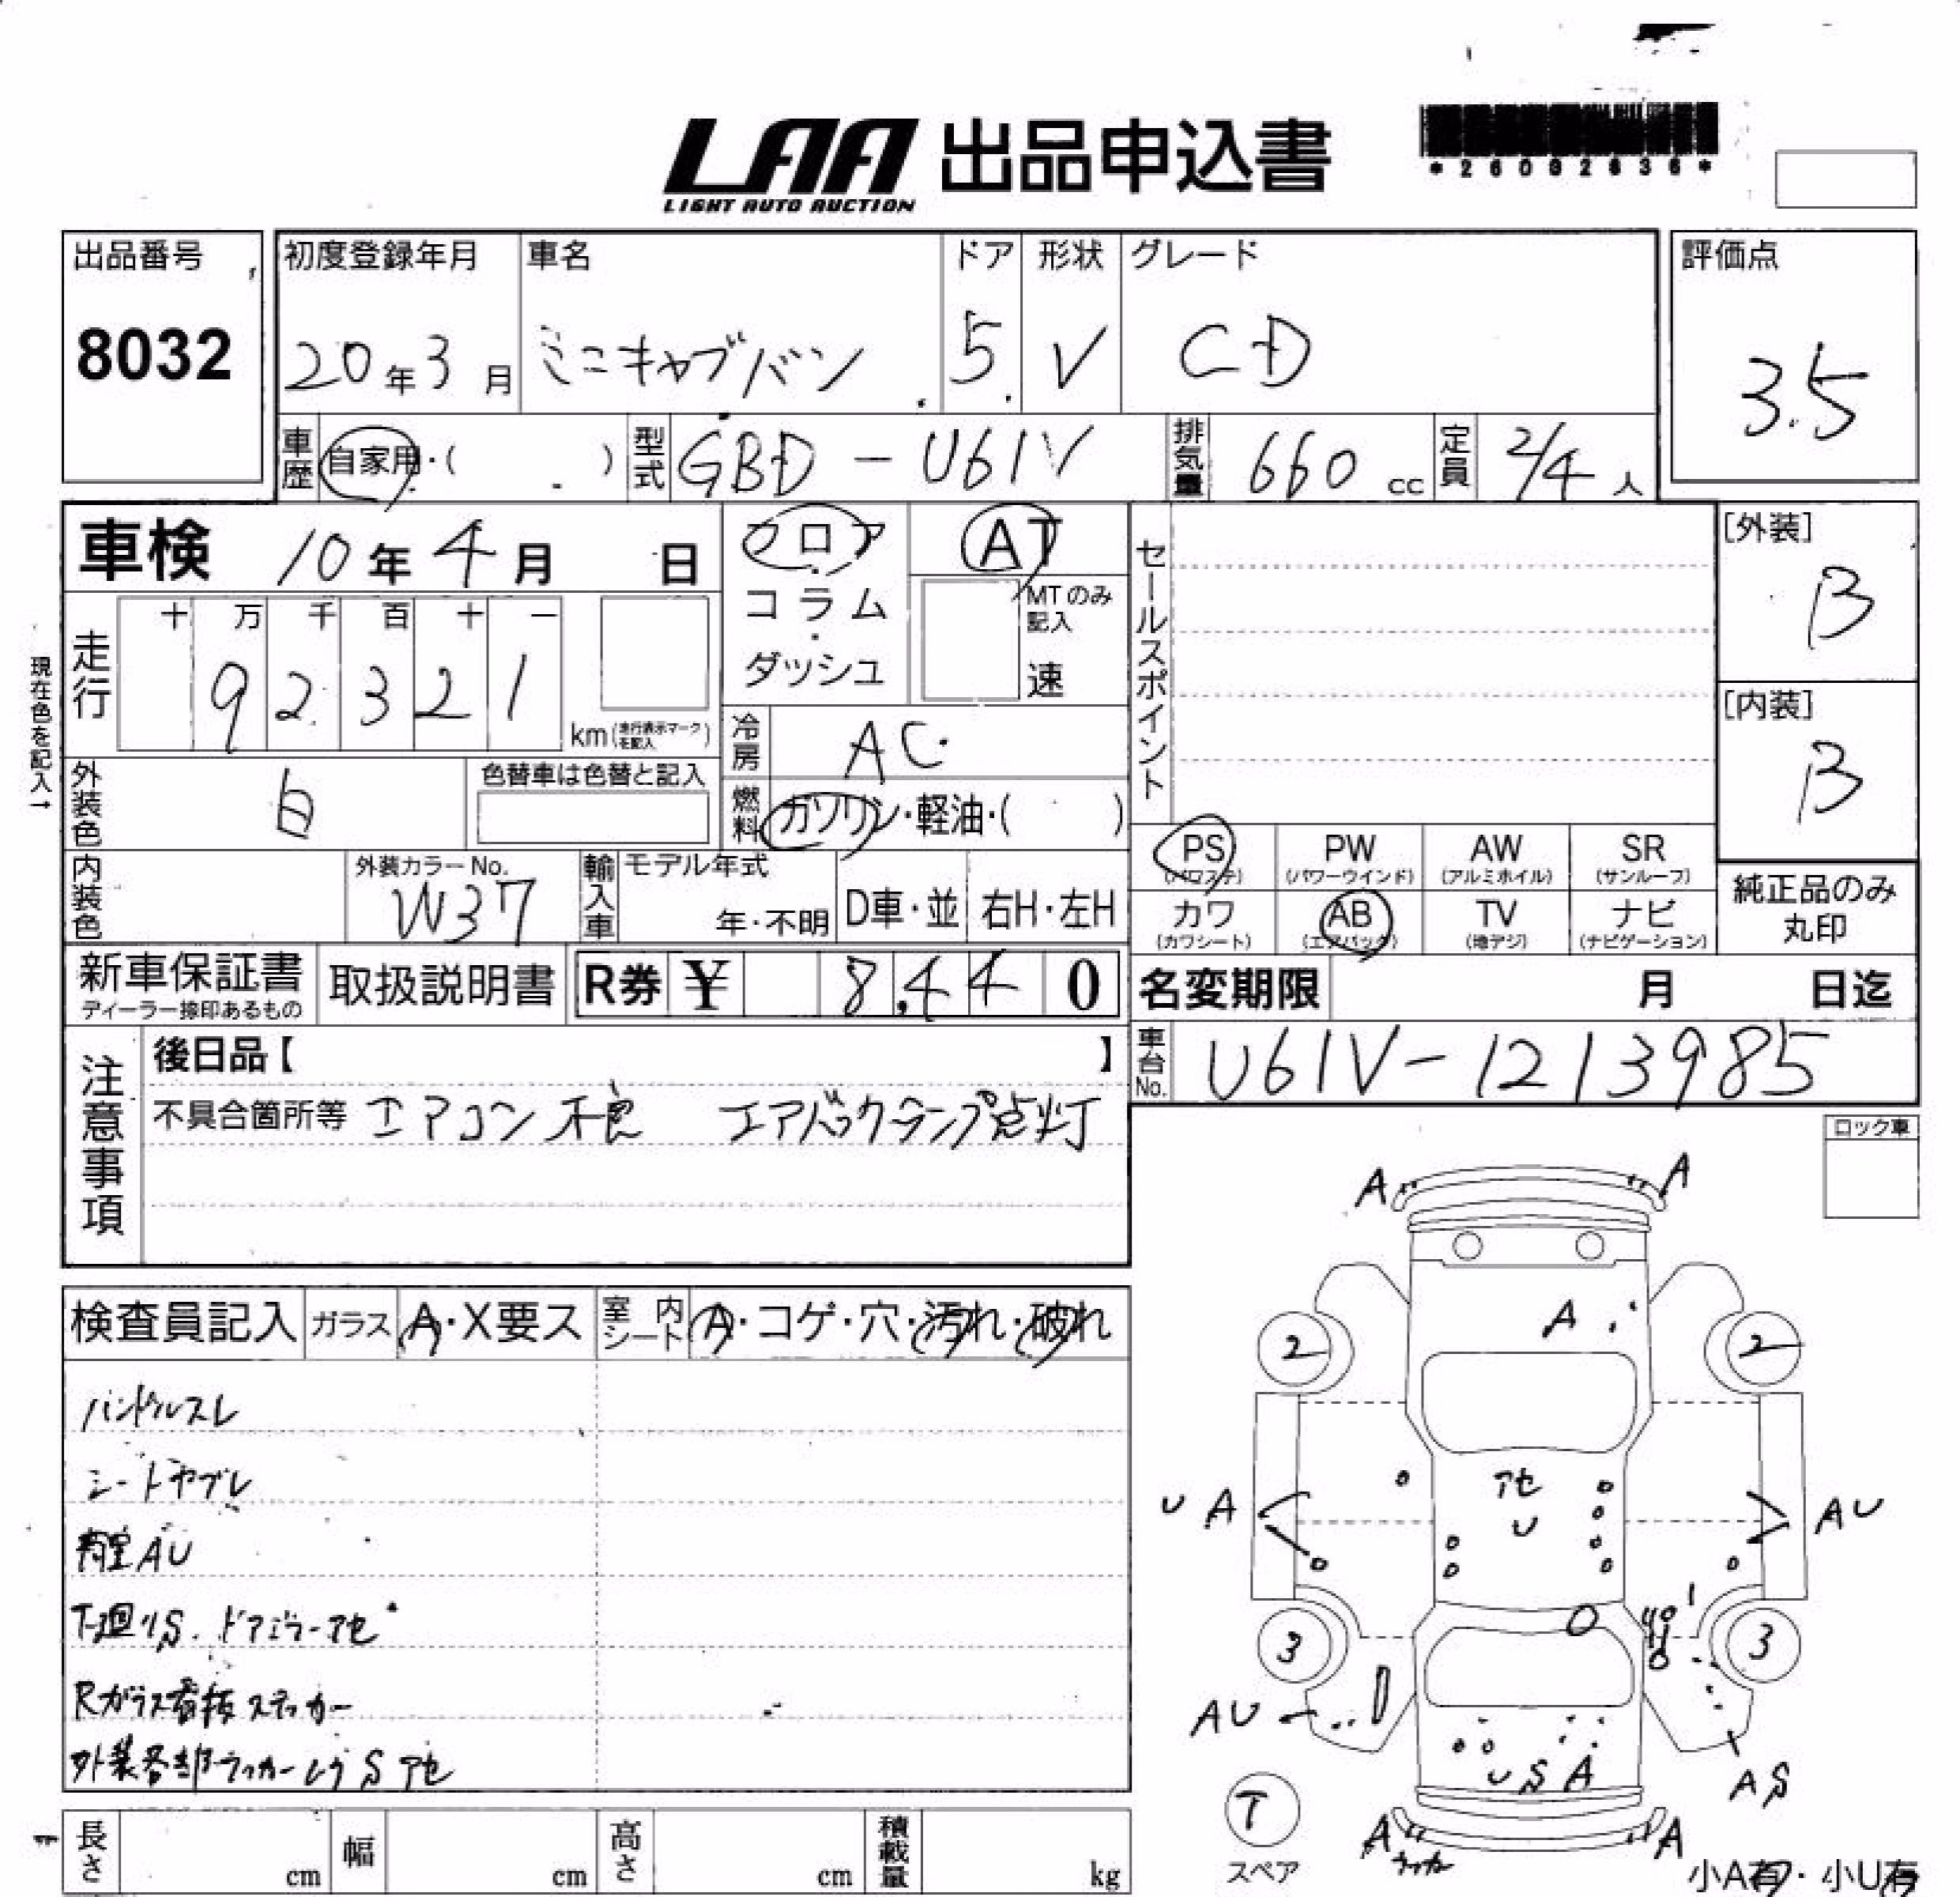 LAA 出品申込書
LIGHT AUTO AUCTION
*26002636*
出品番号
8032
初度登録年月
20年3月
車名
ミニキャブバン
ドア
5
形状
V
グレード
CD
評価点
3.5
車歴 自家用・( )
型式 GBD-U61V
排気量 660 cc
定員 2/4 人
車検 10年4月 日
フロア・コラム・ダッシュ
AT
MTのみ記入
速
セールスポイント
[外装]
B
[内装]
B
現在色を記入→
走行
十 万 千 百 十 一
9 2 3 2 1
km(走行表示マークを記入)
冷房 AC
燃料 ガソリン・軽油・( )
外装色 白
色替車は色替と記入
内装色
外装カラーNo.
W37
輸入車
モデル年式
年・不明
D車・並
右H・左H
PS (パワステ)
PW (パワーウインド)
AW (アルミホイル)
SR (サンルーフ)
カワ (カワシート)
AB (エアバック)
TV (地デジ)
ナビ (ナビゲーション)
純正品のみ
丸印
新車保証書
ディーラー捺印あるもの
取扱説明書
R券 ¥ 8,440
名変期限 月 日迄
車台No. U61V-1213985
注意事項
後日品【 】
不具合箇所等 エアコン不良 エアバックランプ点灯
ロック車
検査員記入
ガラス A・X要ス
室内シート A・コゲ・穴・汚れ・破れ
ハンドルスレ
シートヤブレ
荷室AU
下廻りS. ドアミラーアセ
Rガラス看板ステッカー
外装各部ラッカームラ S アセ
A A
A
2 2
アセ
U
U A
A U
3 3
A U
U S A
A S
T
スペア
A A
ラッカー
小A有・小U有
長さ cm
幅 cm
高さ cm
積載量 kg